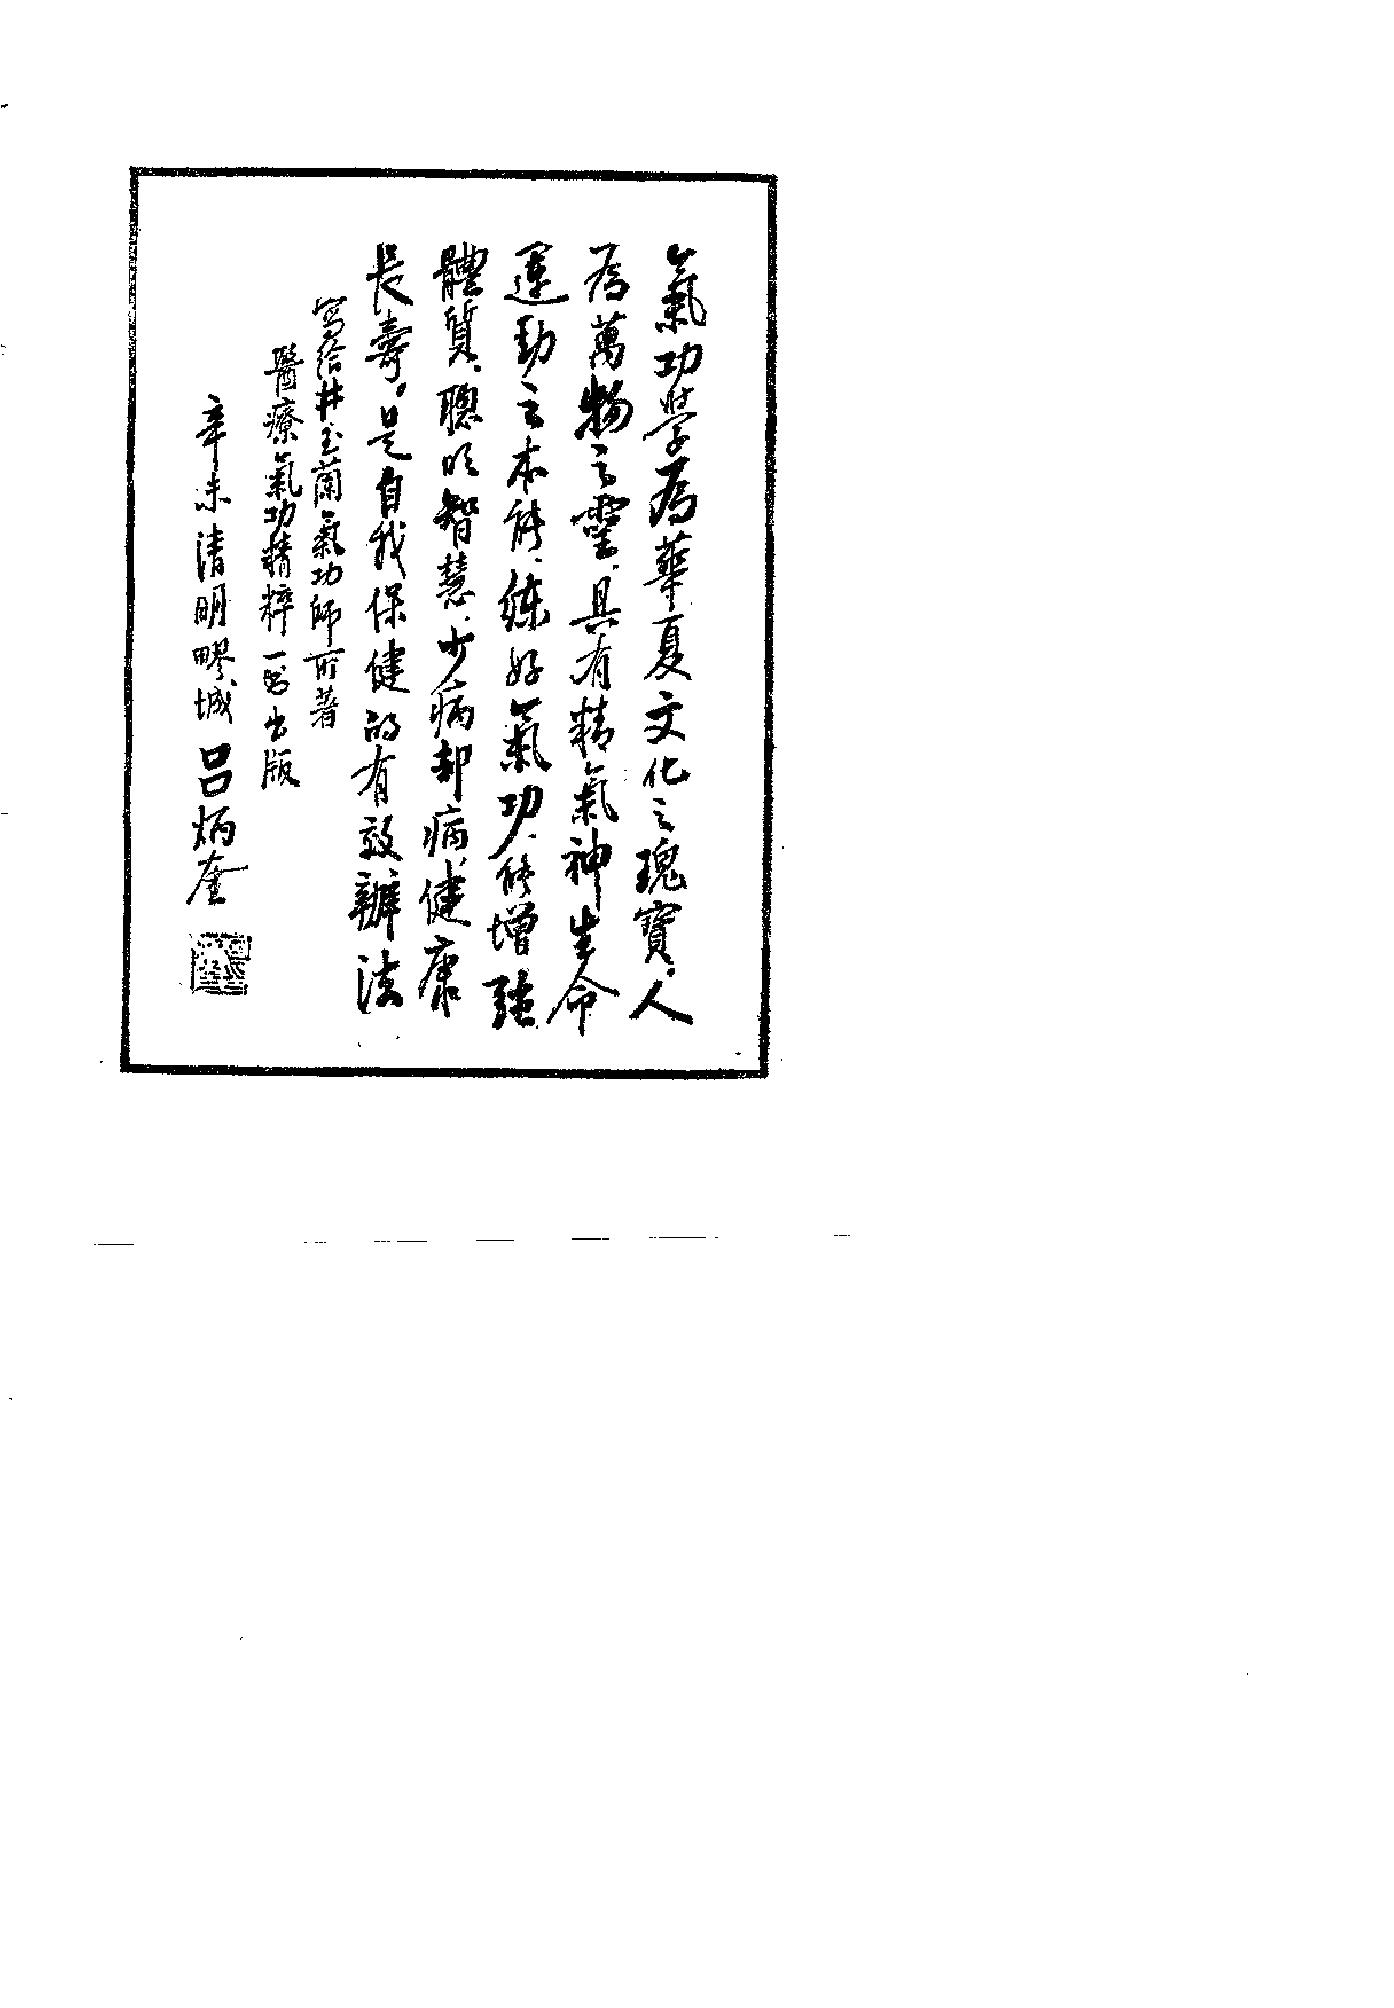 氣功學爲華夏文化之瑰寶、人
爲萬物之靈、具有精氣神生命
運動之本能、練好氣功、能增强
體質、聰明智慧、少病却病、健康
長壽。是自我保健的有效辦法
寫給井玉蘭氣功師所著
醫療氣功精粹一書出版
辛未清明 城 呂炳奎